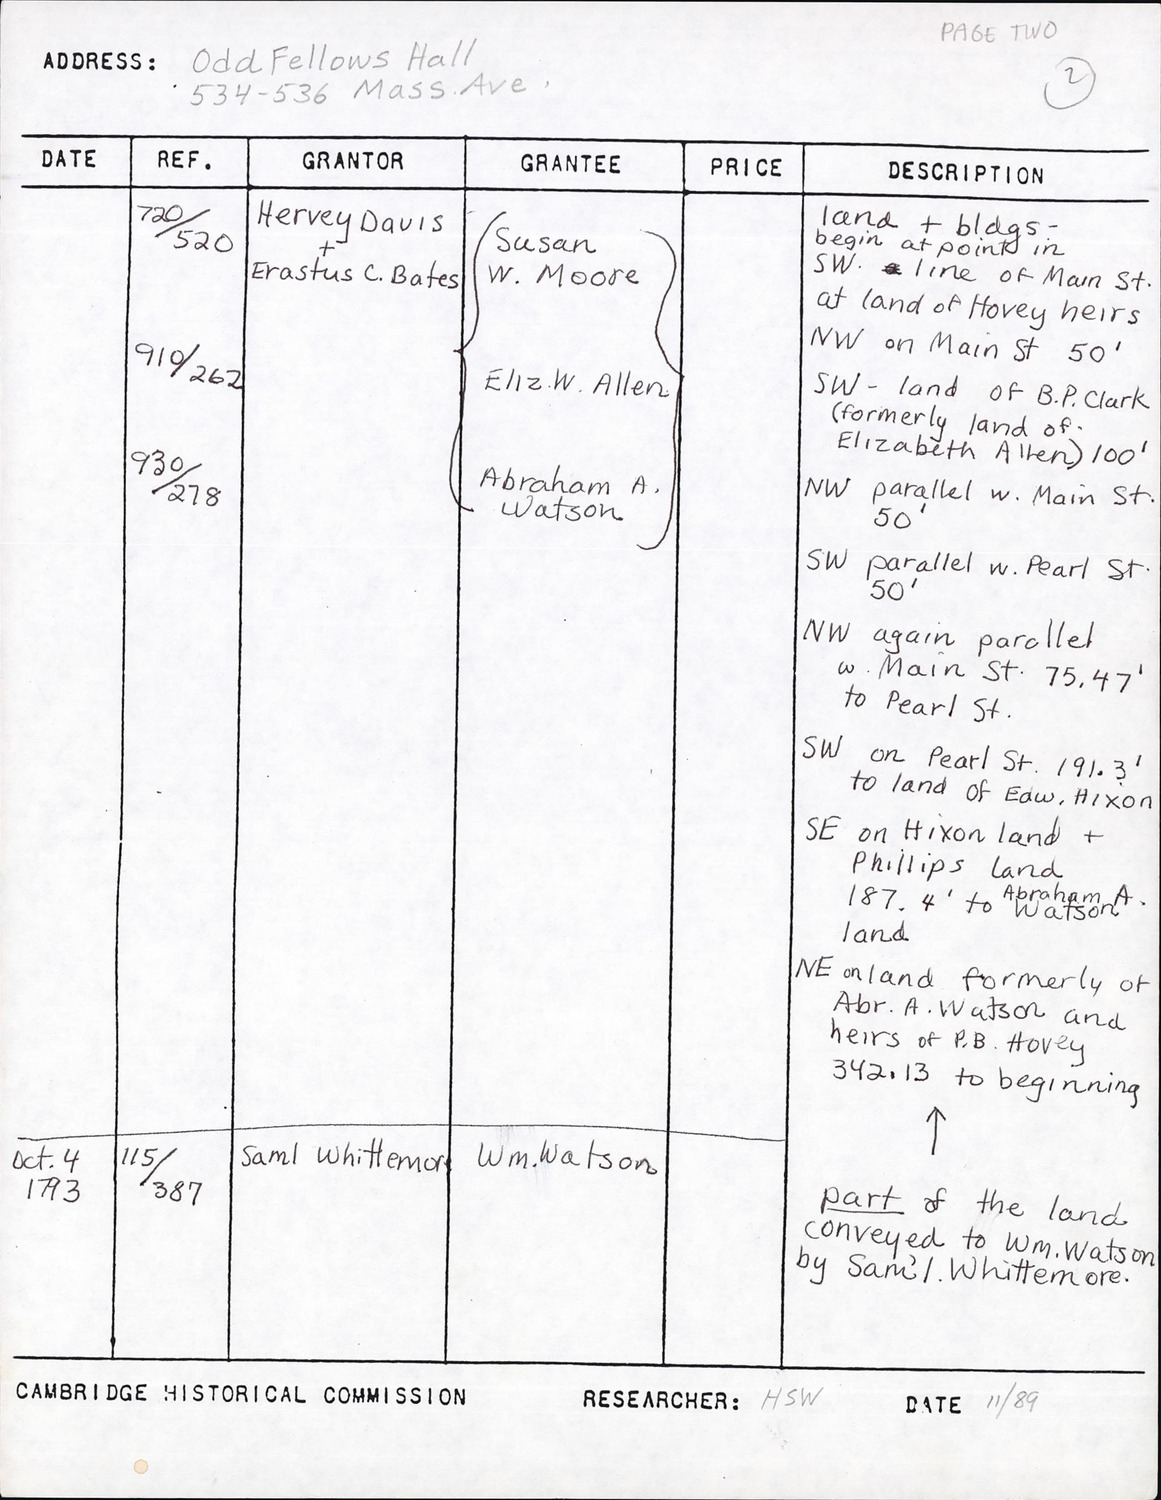 PAGE TWO
2
ADDRESS: Odd Fellows Hall
534-536 Mass. Ave.
DATE REF. GRANTOR GRANTEE PRICE DESCRIPTION
720/520
Hervey Davis
+
Erastus C. Bates
910/262
930/278
Susan
W. Moore
Eliz. W. Allen
Abraham A.
Watson
land + bldgs -
begin at point in
SW. line of Main St.
at land of Hovey heirs
NW on Main St 50'
SW - land of B.P. Clark
(formerly land of
Elizabeth Allen) 100'
NW parallel w. Main St.
50'
SW parallel w. Pearl St.
50'
NW again parallel
w. Main St. 75.47'
to Pearl St.
SW on Pearl St. 191.3'
to land of Edw. Hixon
SE on Hixon land +
Phillips land
187.4' to Abraham A.
Watson
land
NE on land formerly of
Abr. A. Watson and
heirs of P.B. Hovey
342.13 to beginning
↑
Oct. 4
1793
115/387
Saml Whittemore
Wm. Watson
part of the land
conveyed to Wm. Watson
by Sam'l. Whittemore.
CAMBRIDGE HISTORICAL COMMISSION RESEARCHER: HSW DATE 11/89